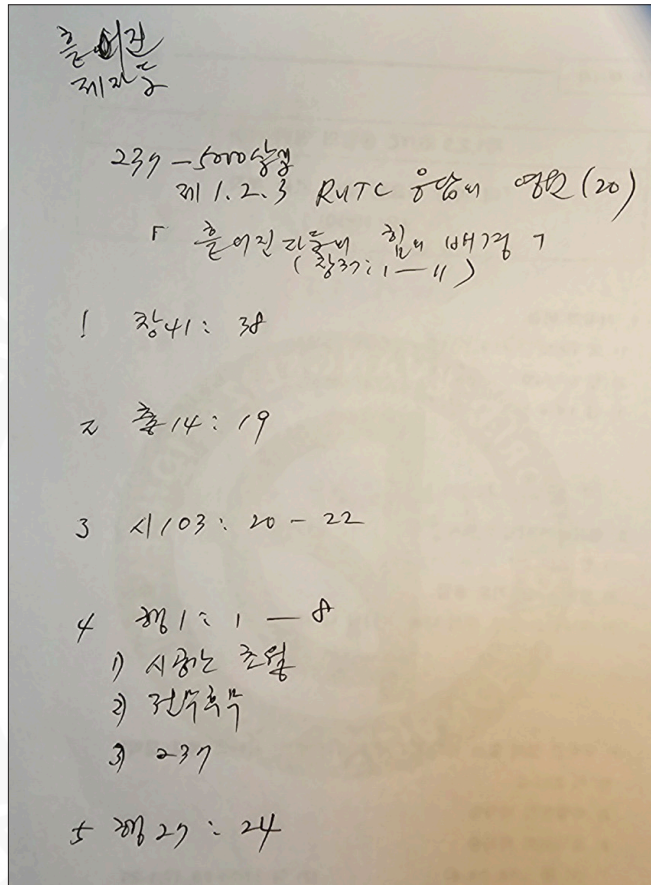 흩어진
제자들
237 - 5000살릴
제 1.2.3 RUTC 응답의 영원 (20)
「 흩어진 자들의 힘의 배경 」
(창37:1 — 11)
1 창41: 38
2 출14: 19
3 시103: 20 - 22
4 행1: 1 — 8
1) 시공간 초월
2) 전무후무
3) 237
5 행27: 24